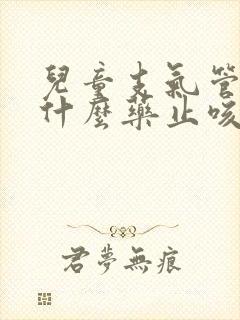 兒童支氣管
什麼藥止咳
君夢無痕